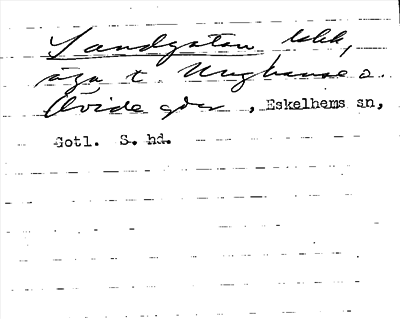 Sandgatan lokk,
äga t. Unghanse o.
Ovide gdr, Eskelhems sn,
Gotl. S. hd.